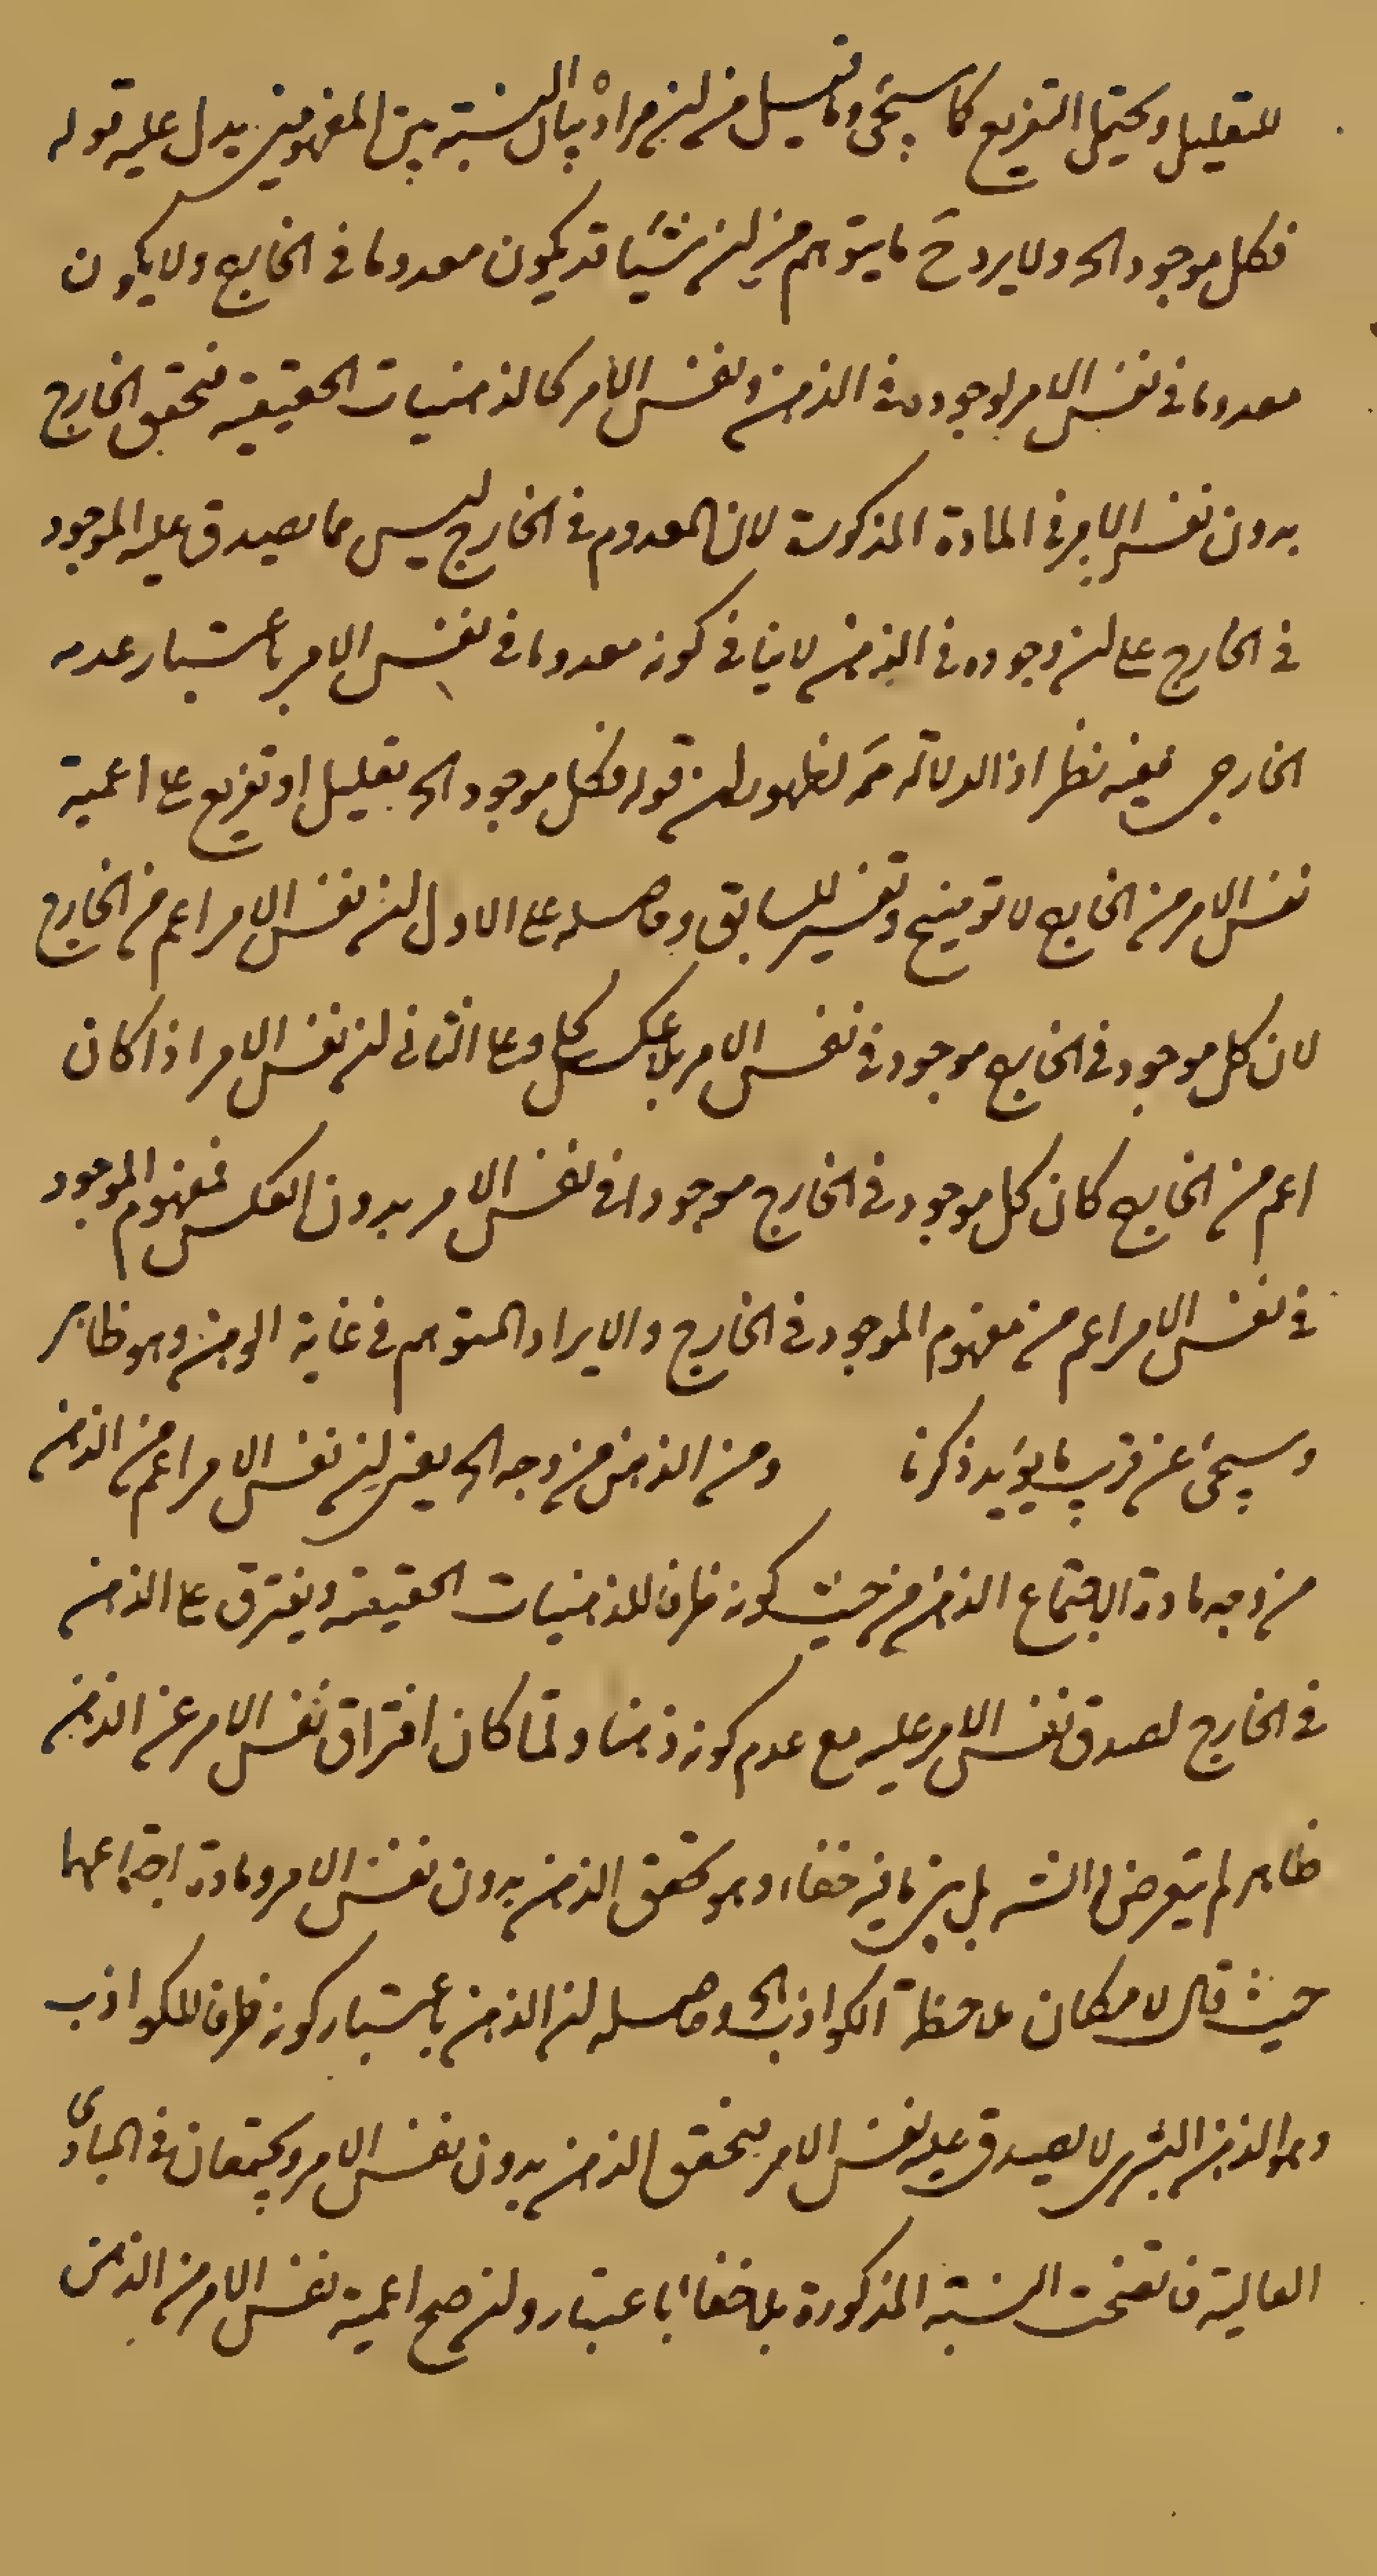 للتعليل ويحتمل التفريع كما سيجئ وما قيل من ان مراده بيان النسبة بين المفهومين يدل عليه قوله
فكل موجود الخ ولا يرد ح ما يتوهم من ان شيئا قد يكون معدوما في الخارج ولا يكون
معدوما في نفس الامر لوجوده في الذهن ونفس الامر كالذهنيات الحقيقية فتحقق الخارج
بدون نفس الامر في المادة المذكورة لان المعدوم في الخارج ليس مما يصدق عليه الموجود
في الخارج على ان وجوده في الذهن لا ينافي كونه معدوما في نفس الامر باعتبار عدمه
الخارجي ففيه نظر اذ الدلالة مم لظهور ان قوله فكل موجود الخ تعليل او تفريع على اعمية
نفس الامر من الخارج لا توضيح وتفسير للسابق وحاصله على الاول ان نفس الامر اعم من الخارج
لان كل موجود في الخارج موجود في نفس الامر بلا عكس كلي وعلى الثاني ان نفس الامر اذا كان
اعم من الخارج كان كل موجود في الخارج موجودا في نفس الامر بدون العكس فمفهوم الموجود
في نفس الامر اعم من مفهوم الموجود في الخارج والايراد المتوهم في غاية الوهن وهو ظاهر
وسيجئ عن قريب ما يؤيد ذكرنا ومن الذهن من وجه الخ يعني ان نفس الامر اعم من الذهن
من وجه مادة الاجتماع الذهن من حيث كونه ظرفا للذهنيات الحقيقية ويفترق على الذهن
في الخارج لصدق نفس الامر عليه مع عدم كونه ذهنا ولما كان افتراق نفس الامر عن الذهن
ظاهر لم يتعرض له الشه بل بين ما فيه خفاء وهو تحقق الذهن بدون نفس الامر ومادة اجتماعهما
حيث قال لامكان ملاحظة الكواذب الخ وحاصله ان الذهن باعتبار كونه ظرفا للكواذب
وهو الذهن البشري لا يصدق عليه نفس الامر فيتحقق الذهن بدون نفس الامر ويجتمعان في المبادي
العالية فاتضحت النسبة المذكورة بلا خفاء باعتبار ولان صح اعمية نفس الامر من الذهن